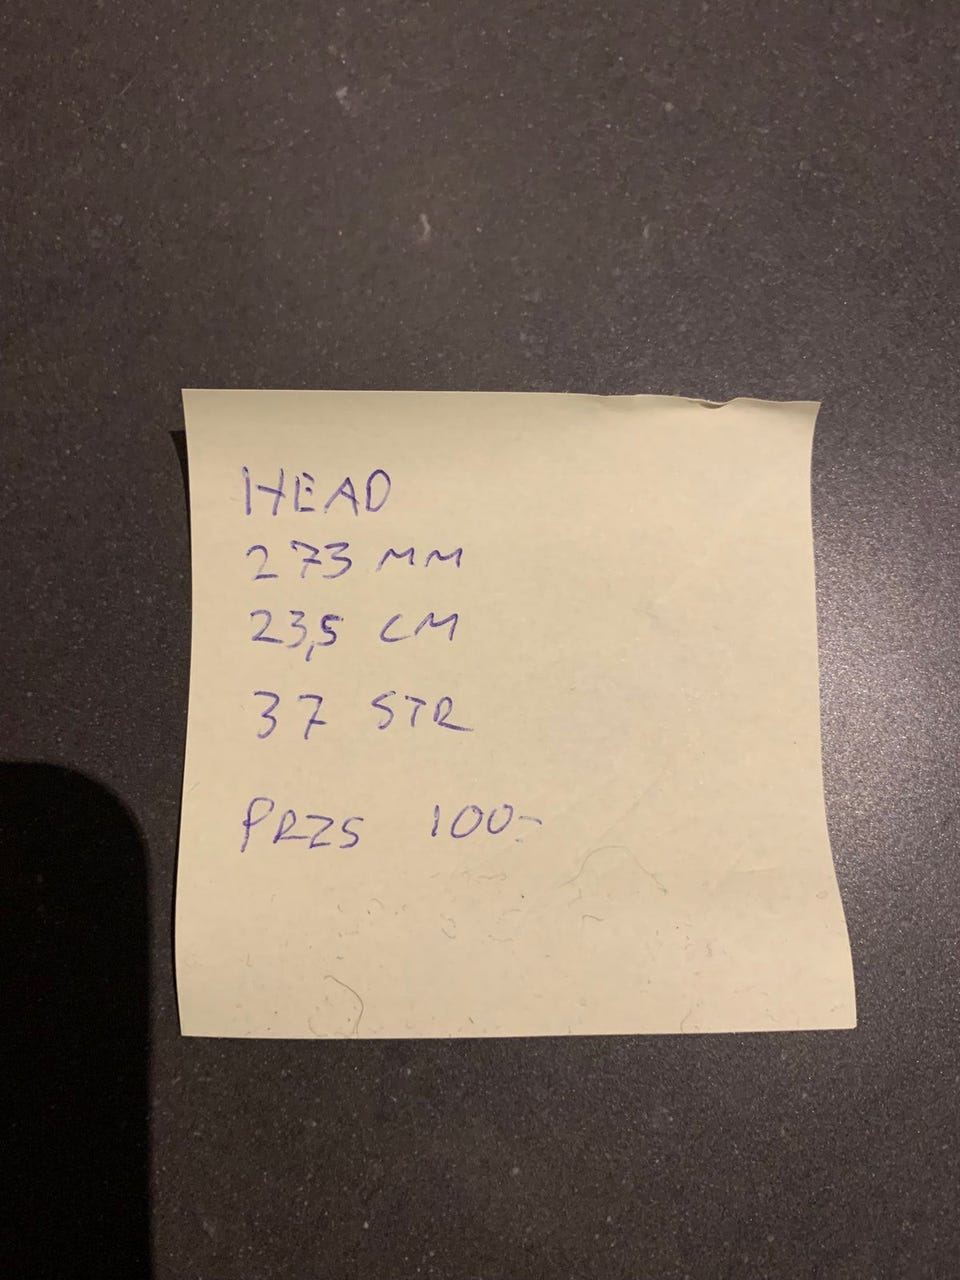 HEAD
273 MM
23,5 CM
37 STR
PRIS 100-